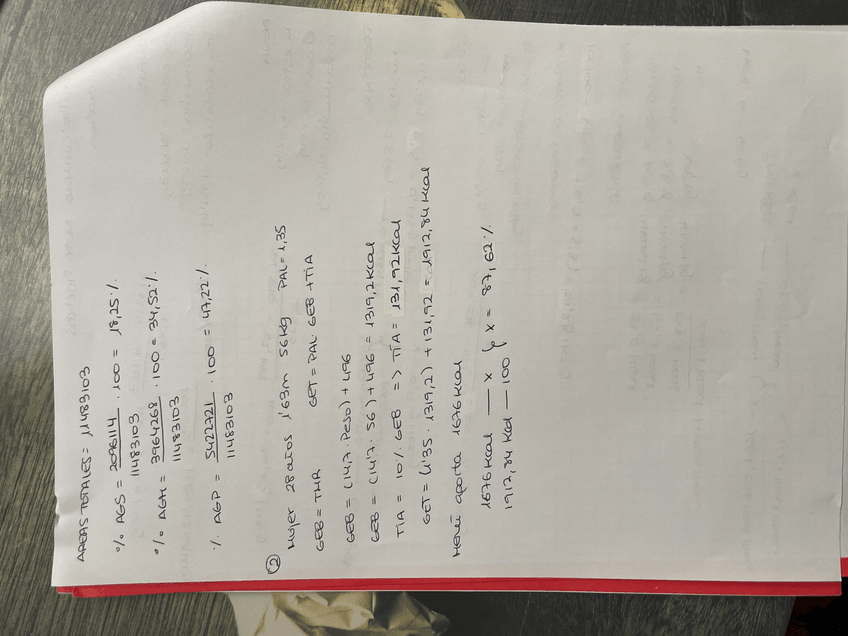 AREAS TOTALES = 11483103
% AGS = 2096114 / 11483103 · 100 = 18,25 %.
% AGM = 3964268 / 11483103 · 100 = 34,52 %.
% AGP = 5422721 / 11483103 · 100 = 47,22 %.
② Mujer 28 años 1'63m 56Kg PAL = 1,35
GEB = TMR GET = PAL · GEB + TIA
GEB = (14,7 · Peso) + 496
GEB = (14'7 · 56) + 496 = 1319,2 Kcal
TIA = 10% GEB => TIA = 131,92 Kcal
GET = (1'35 · 1319,2) + 131,92 = 1912,84 Kcal
Menú aporta 1676 Kcal
1676 Kcal — x
1912,84 Kcal — 100 } x = 87,62 %